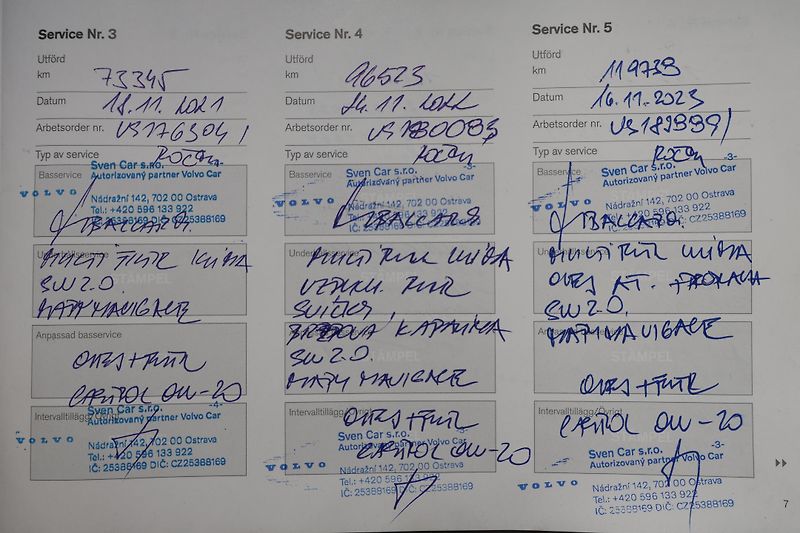 Service Nr. 3
Utförd
km 73345
Datum 18.11.2021
Arbetsorder nr.
Typ av service ROČNÍ
Basservice
Sven Car s.r.o. -4-
Autorizovaný partner Volvo Car
VOLVO
Nádražní 142, 702 00 Ostrava
Tel.: +420 596 133 922
IČ: 25388169 DIČ: CZ25388169
MULTI FILTR KLIMA
SW 2.0.
MAPY NAVIGACE
Anpassad basservice
OLEJ + FILTR
CASTROL 0W-20
Intervalltillägg/Övrigt
Sven Car s.r.o. -4-
Autorizovaný partner Volvo Car
VOLVO
Nádražní 142, 702 00 Ostrava
Tel.: +420 596 133 922
IČ: 25388169 DIČ: CZ25388169
Service Nr. 4
Utförd
km 96523
Datum 24.11.2022
Arbetsorder nr.
Typ av service ROČNÍ
Basservice
Sven Car s.r.o. -5-
Autorizovaný partner Volvo Car
VOLVO
Nádražní 142, 702 00 Ostrava
MULTI FILTR KLIMA
FILTR
SVÍČKY,
BRZDOVÁ KAPALINA
SW 2.0.
MAPY NAVIGACE
OLEJ + FILTR
Intervalltillägg/Övrigt
CASTROL 0W-20
Sven Car s.r.o.
Autorizovaný partner Volvo Car
VOLVO
Nádražní 142, 702 00 Ostrava
Tel.: +420 596 133 922
IČ: 25388169 DIČ: CZ25388169
Service Nr. 5
Utförd
km 119738
Datum 16.11.2023
Arbetsorder nr.
Typ av service ROČNÍ
Basservice
Sven Car s.r.o. -3-
Autorizovaný partner Volvo Car
VOLVO
Nádražní 142, 702 00 Ostrava
Tel.: +420 596 133 922
IČ: 25388169 DIČ: CZ25388169
MULTI FILTR KLIMA
OLEJ AT.
SW 2.0.
MAPY NAVIGACE
STÄMPEL
OLEJ + FILTR
Intervalltillägg/Övrigt
CASTROL 0W-20
Sven Car s.r.o. -3-
Autorizovaný partner Volvo Car
VOLVO
Nádražní 142, 702 00 Ostrava
Tel.: +420 596 133 922
IČ: 25388169 DIČ: CZ25388169
7